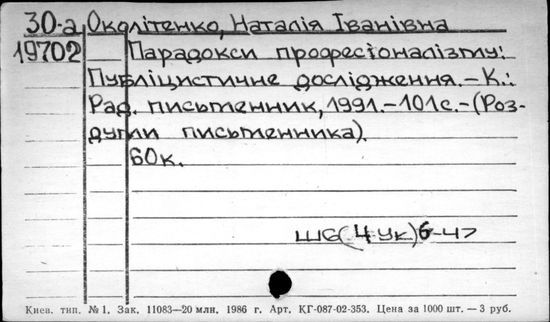 30-а Околітенко, Наталія Іванівна
19702 Парадокси професіоналізму:
Публіцистичне дослідження.-К.:
Рад. письменник, 1991.-101с.-(Роз-
думи письменника).
60к.
Ш6(4Ук)6-47
Киев. тип. № 1, Зак. 11083—20 млн. 1986 г. Арт. КГ-087-02-353. Цена за 1000 шт. — 3 руб.